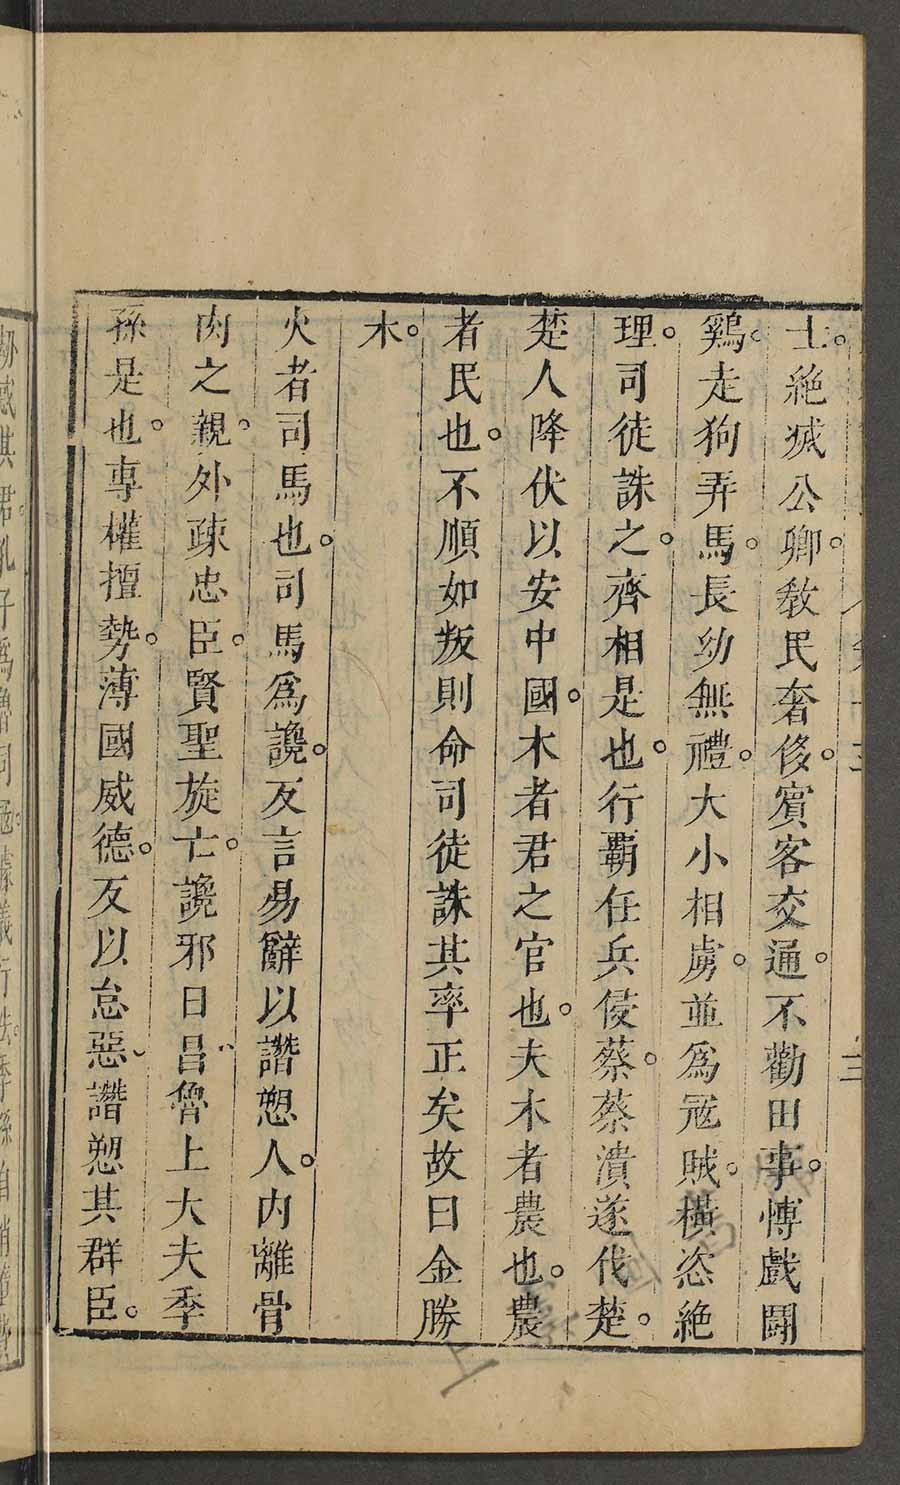 士。絶滅公卿。敎民奢侈。賓客交通。不勸田事。愽戲鬪
鷄。走狗弄馬。長幼無禮。大小相虜。並爲冦賊。橫恣絶
理。司徒誅之。齊相是也。行覇任兵侵蔡。蔡潰遂伐楚。
楚人降伏以安中國。木者君之官也。夫木者農也。農
者民也。不順如叛則命司徒誅其率正矣故曰金勝
木。
火者司馬也。司馬爲讒。反言易辭以譖愬人。内離骨
肉之親。外疎忠臣。賢聖旋亡。讒邪日昌魯上大夫季
孫是也。専權擅勢。薄國威德。反以怠惡譖愬其群臣。
刼惑其君。孔子爲魯司冦。據義行法。季孫自消